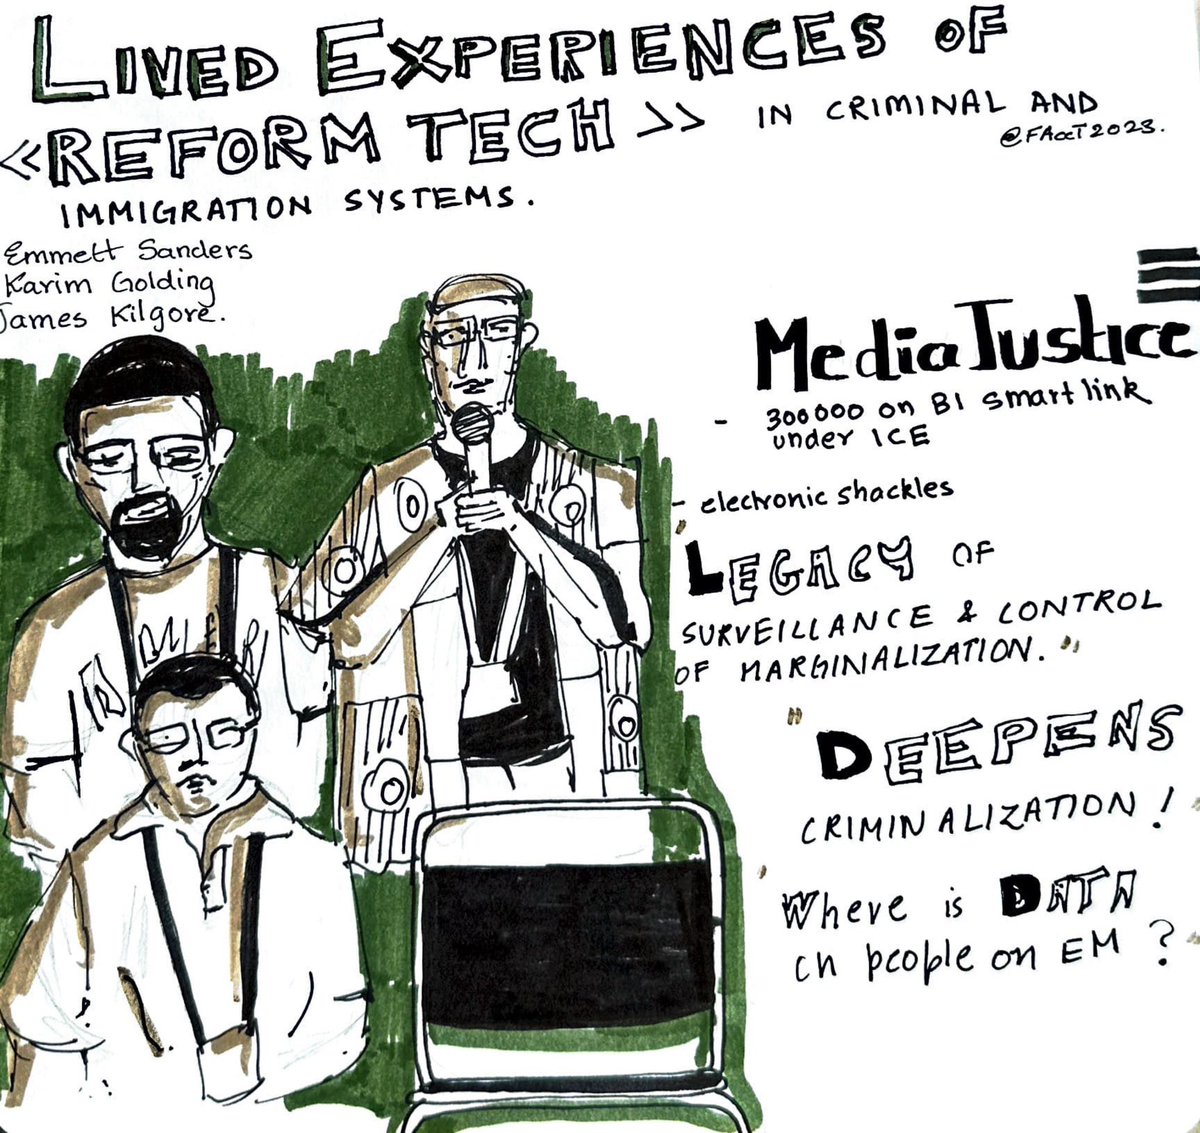 LIVED EXPERIENCES OF
«REFORM TECH >> IN CRIMINAL AND
@FAccT2023.
IMMIGRATION SYSTEMS.
Emmett Sanders
Karim Golding
James Kilgore.
MediaJustice
- 300000 on BI smart link
under ICE
- electronic shackles
" LEGACY OF
SURVEILLANCE & CONTROL
OF MARGINALIZATION. "
" DEEPENS
CRIMINALIZATION !
' Where is DATA
on people on EM ? "